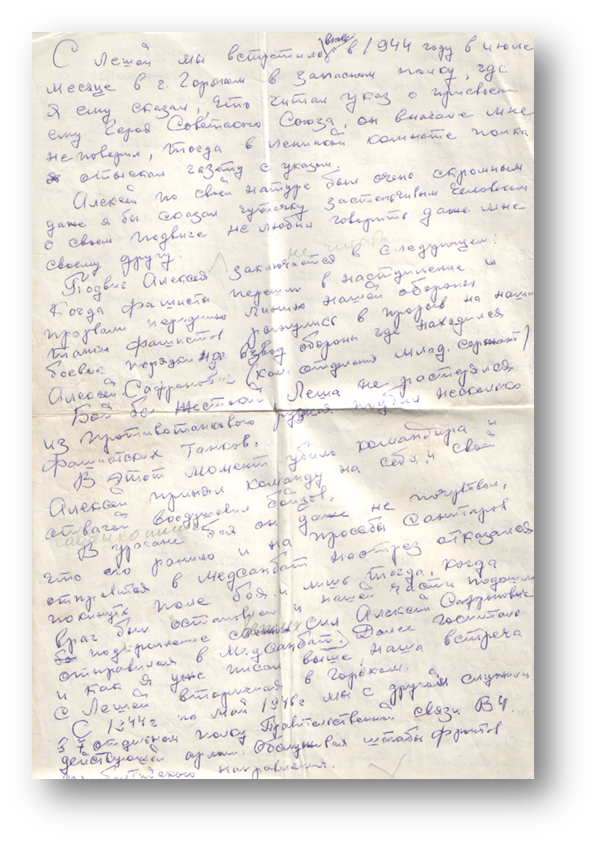 С Лешей мы встретились в 1944 году в июле
месяце в г. Горьком в запасном полку, где
я ему сказал, что читал указ о присвоен
ему Героя Советского Союза, он вначале мне
не поверил, тогда в Ленинской комнате полка
я отыскал газету с указом.
Алексей по своей натуре был очень скромным
даже я бы сказал чуточку застенчивым человеком
о своем подвиге не любил говорить даже мне
своему другу.
Подвиг Алексея заключается в следующем:
Когда фашисты перешли в наступление и
прорвали переднюю линию нашей обороны
танки фашистов ринулись в прорыв на наши
боевые порядки на взвод обороны где находился
Алексей Сафронов (ком. отделения млад. сержант)
Бой был жестокий Леша не растерялся
из противотанкового ружья подбил несколько
фашистских танков.
В этот момент убило командира и
Алексей принял команду на себя, и своей
отвагой воодушевил бойцов.
В урагане боя он даже не почувствовал,
что его ранило и на просьбы санитаров
отправится в медсанбат наотрез отказался
покинуть поле боя, и лишь тогда, когда
враг был остановлен и нашей части подошло
подкрепление сил Алексей Сафронов
отправился в Медсанбат. Далее госпиталь
и как я уже писал выше, наша встреча
с Лешей вторичная в Горьком.
С 1944 г. по май 1946 г мы с другом служили
в 7 отдельном полку Правительственной связи ВЧ.
действующей армии. Обслуживая штабы фронтов
направления.